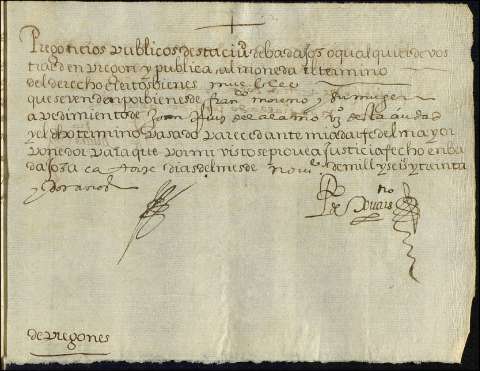 Pregoneros publicos desta ciud de badajos o qualquier de vos
traed en pregon y publica almoneda el termino
del derecho estos bienes muebles
que se venden por bienes de franco moreno y su muger
a pedimiento de Joan del alamo vo desta ciudad
y el dho termino pasado pareced ante mi a dar fe del mayor
ponedor para que por mi visto se provea justicia fecho en ba
dajos a dias del mes de nove de mill y seis y treinta
y dos años
de pregones